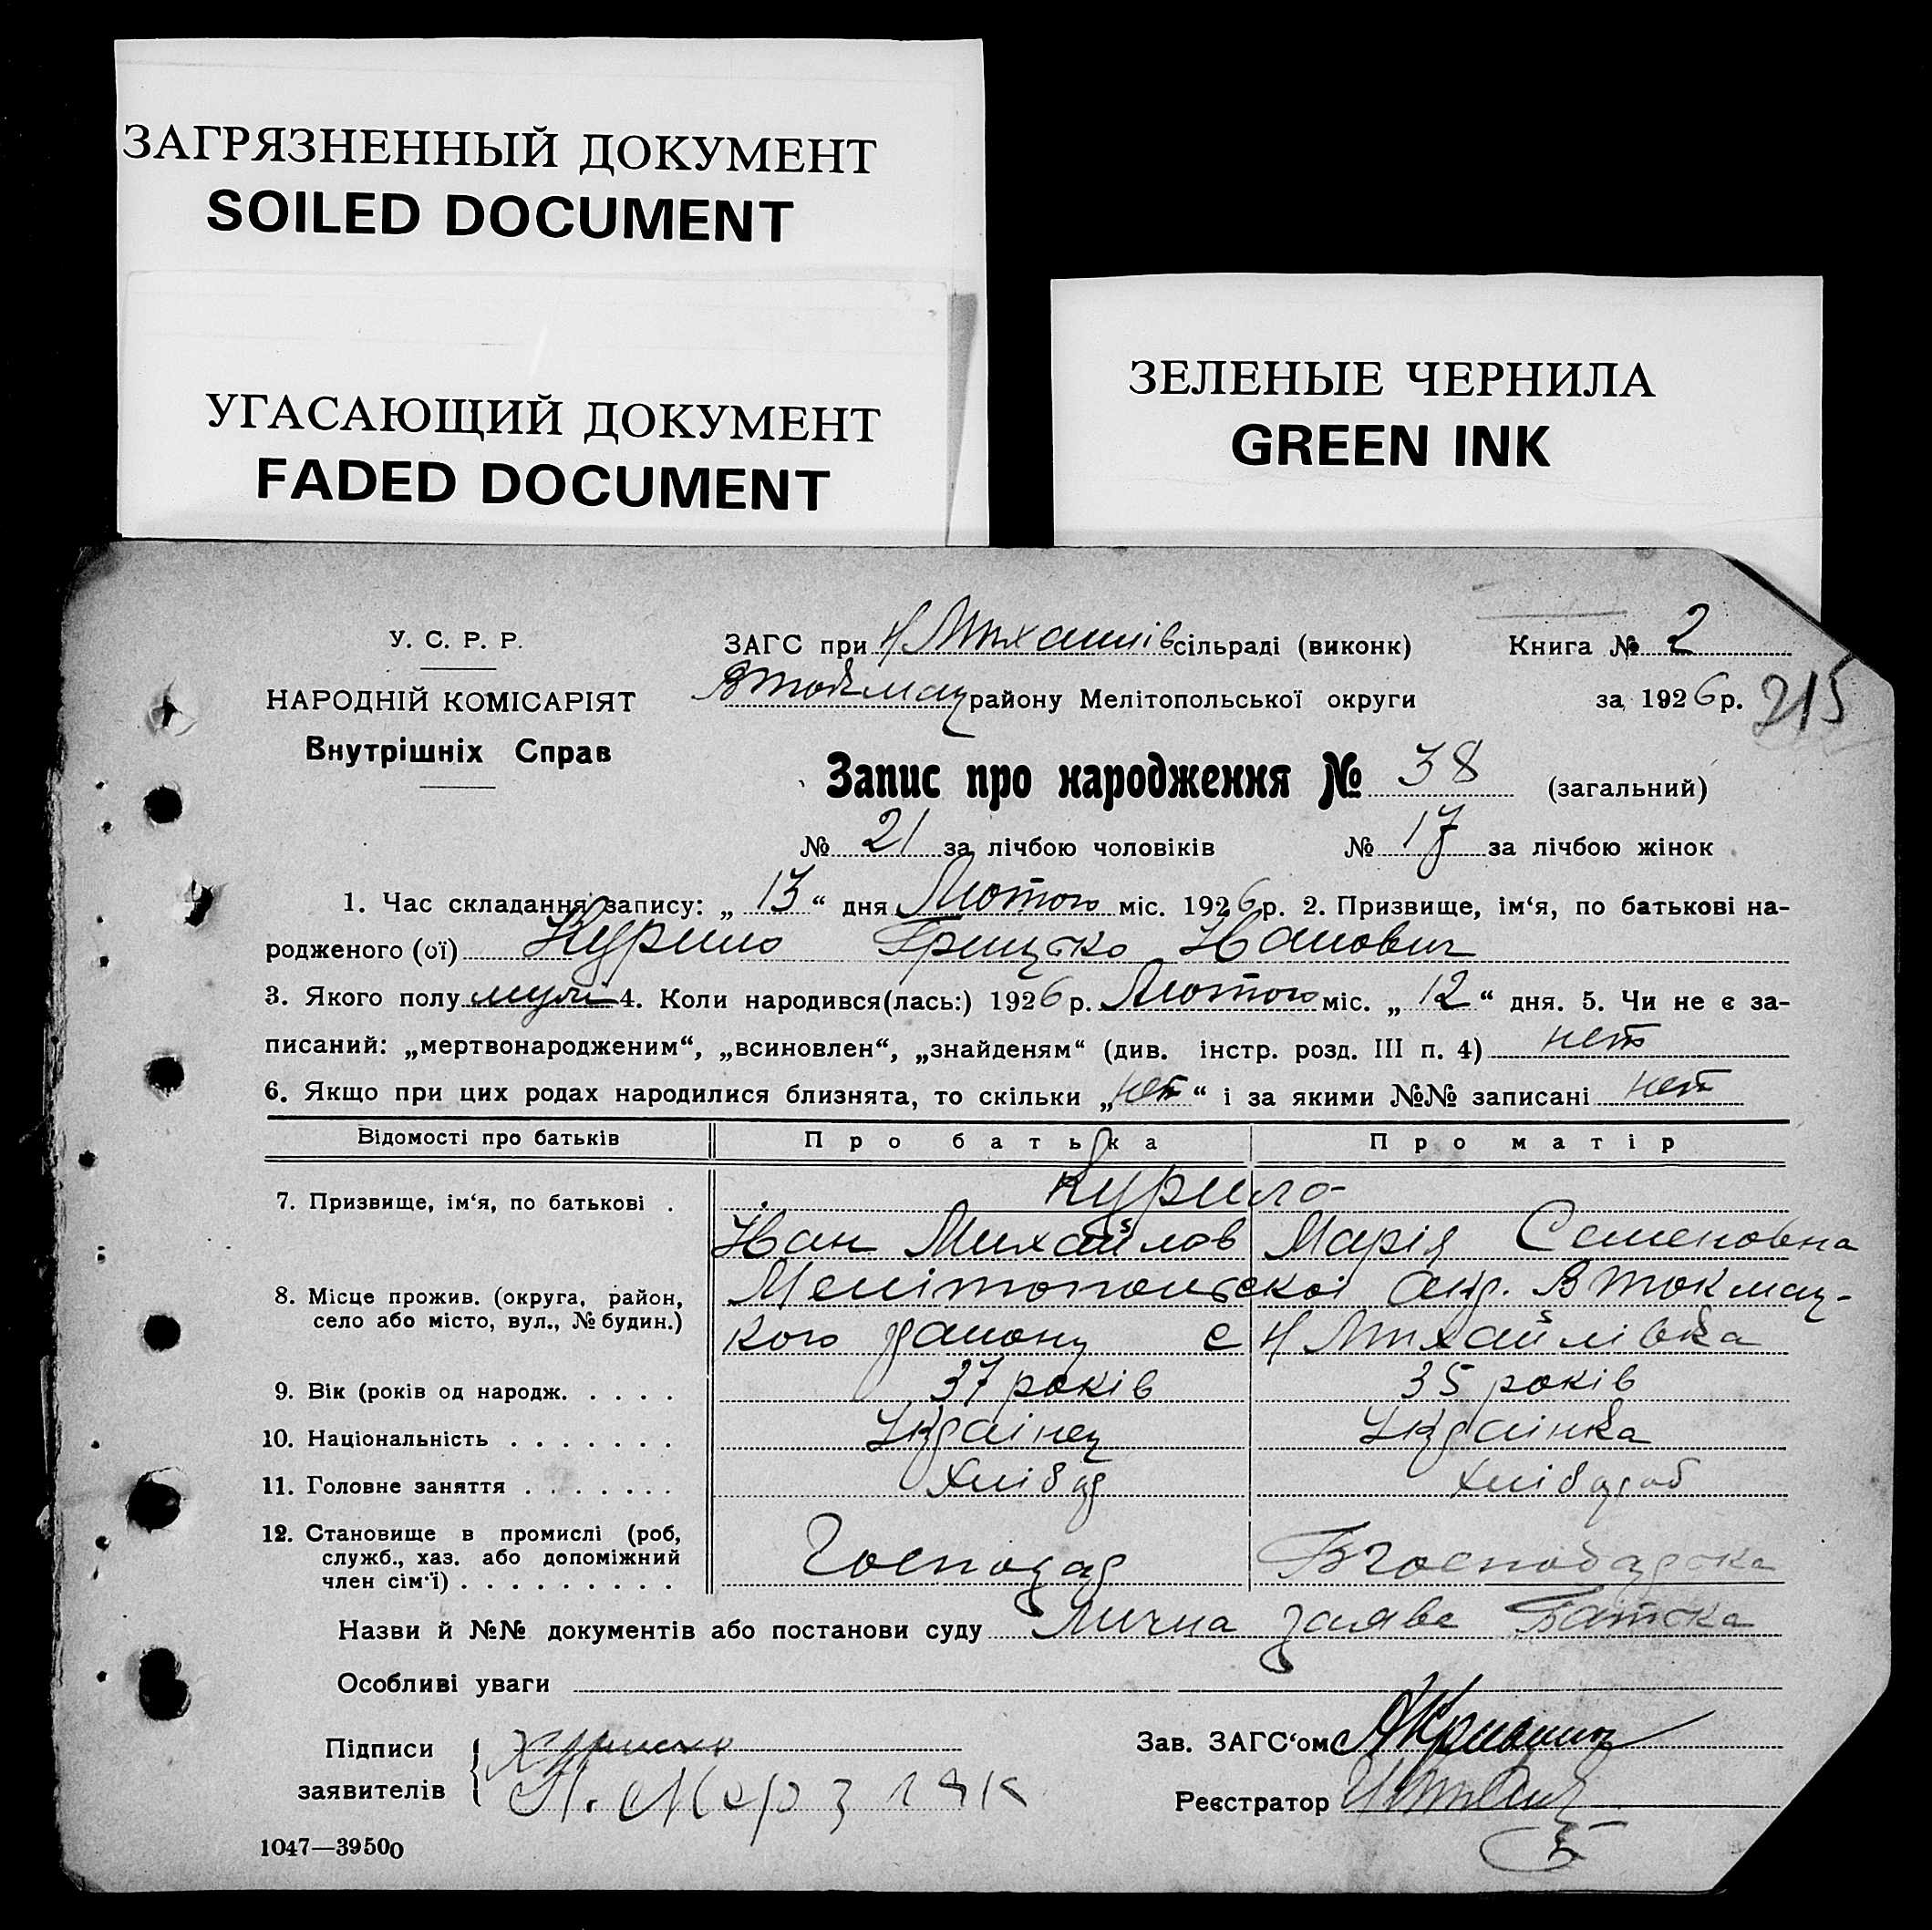 ЗАГРЯЗНЕННЫЙ ДОКУМЕНТ
SOILED DOCUMENT
УГАСАЮЩИЙ ДОКУМЕНТ
FADED DOCUMENT
ЗЕЛЕНЫЕ ЧЕРНИЛА
GREEN INK
У. С. Р. Р.
НАРОДНІЙ КОМІСАРІЯТ
Внутрішніх Справ
ЗАГС при Н Михайлів сільраді (виконк) Книга № 2
В Токмац району Мелітопольської округи за 1926 р. 215
Запис про народження № 38 (загальний)
№ 21 за лічбою чоловіків № 17 за лічбою жінок
1. Час складання запису: „ 13 “ дня Лютого міс. 1926 р. 2. Призвище, ім‘я, по батькові на-
родженого (ої) Курило Грицько Иванович
3. Якого полу муж 4. Коли народився(лась:) 1926 р. Лютого міс. „ 12 “ дня. 5. Чи не є за-
писаний: „мертвонародженим“, „всиновлен“, „знайденям“ (див. інстр. розд. III п. 4) нет
6. Якщо при цих родах народилися близнята, то скільки „ нет “ і за якими №№ записані нет
Відомості про батьків Про батька Про матір
7. Призвище, ім‘я, по батькові . Курило
Иван Михайлов Марія Семеновна
8. Місце прожив. (округа, район, село або місто, вул., № будин.) Мелітопольскоі окр. В Токмац-
кого району с Н Михайлівка
9. Вік (років од народж. . . . . 37 років 35 років
10. Національність . . . . . . . Украінец Украінка
11. Головне заняття . . . . . . . хлібор хлібороб
12. Становище в промислі (роб,
служб., хаз. або допоміжний
член сім‘ї) . . . . . . . . . Господар Господарка
Назви й №№ документів або постанови суду Лична заява Батька
Особливі уваги
Підписи
заявителів
Зав. ЗАГС‘ом
Реєстратор
1047—39500